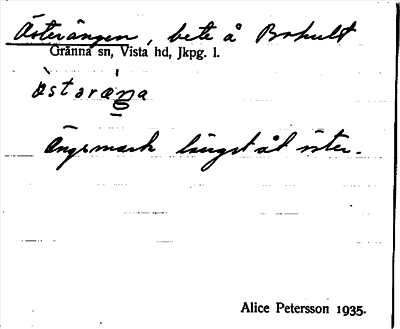 Österängen, bete å Bohult
Gränna sn, Vista hd, Jkpg. l.
Ängsmark längst åt öster.
Alice Petersson 1935.